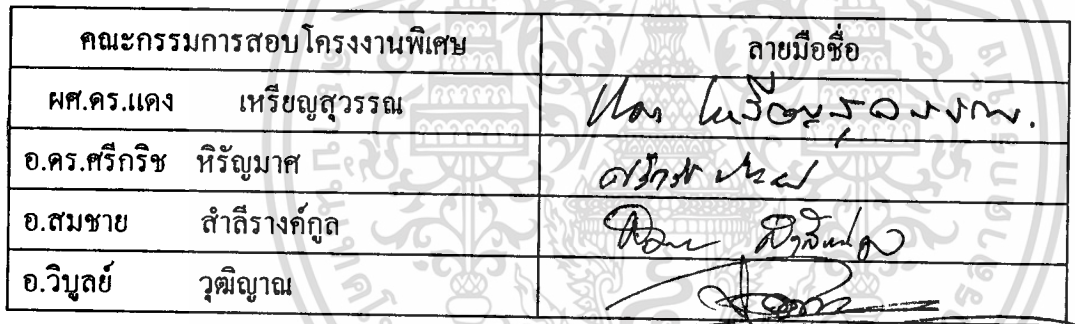 คณะกรรมการสอบโครงงานพิเศษ ลายมือชื่อ
ผศ.ดร.แดง เหรียญสุวรรณ แดง เหรียญสุวรรณ.
อ.ดร.ศรีกริช หิรัญมาศ
อ.สมชาย สำลีรางค์กูล
อ.วิบูลย์ วุฒิญาณ